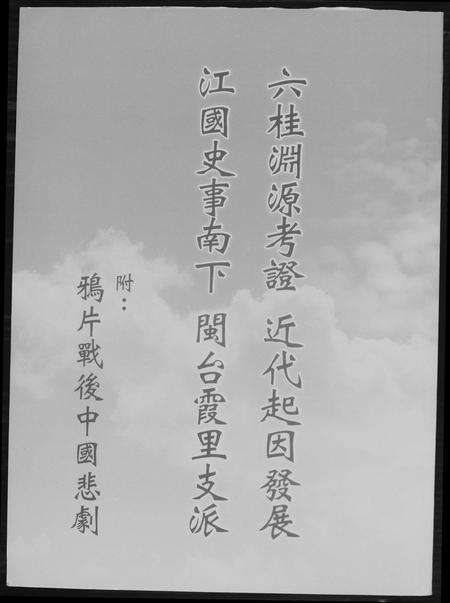 六桂淵源考證 近代起因發展
江國史事南下 閩台霞里支派
附：
鴉片戰後中國悲劇